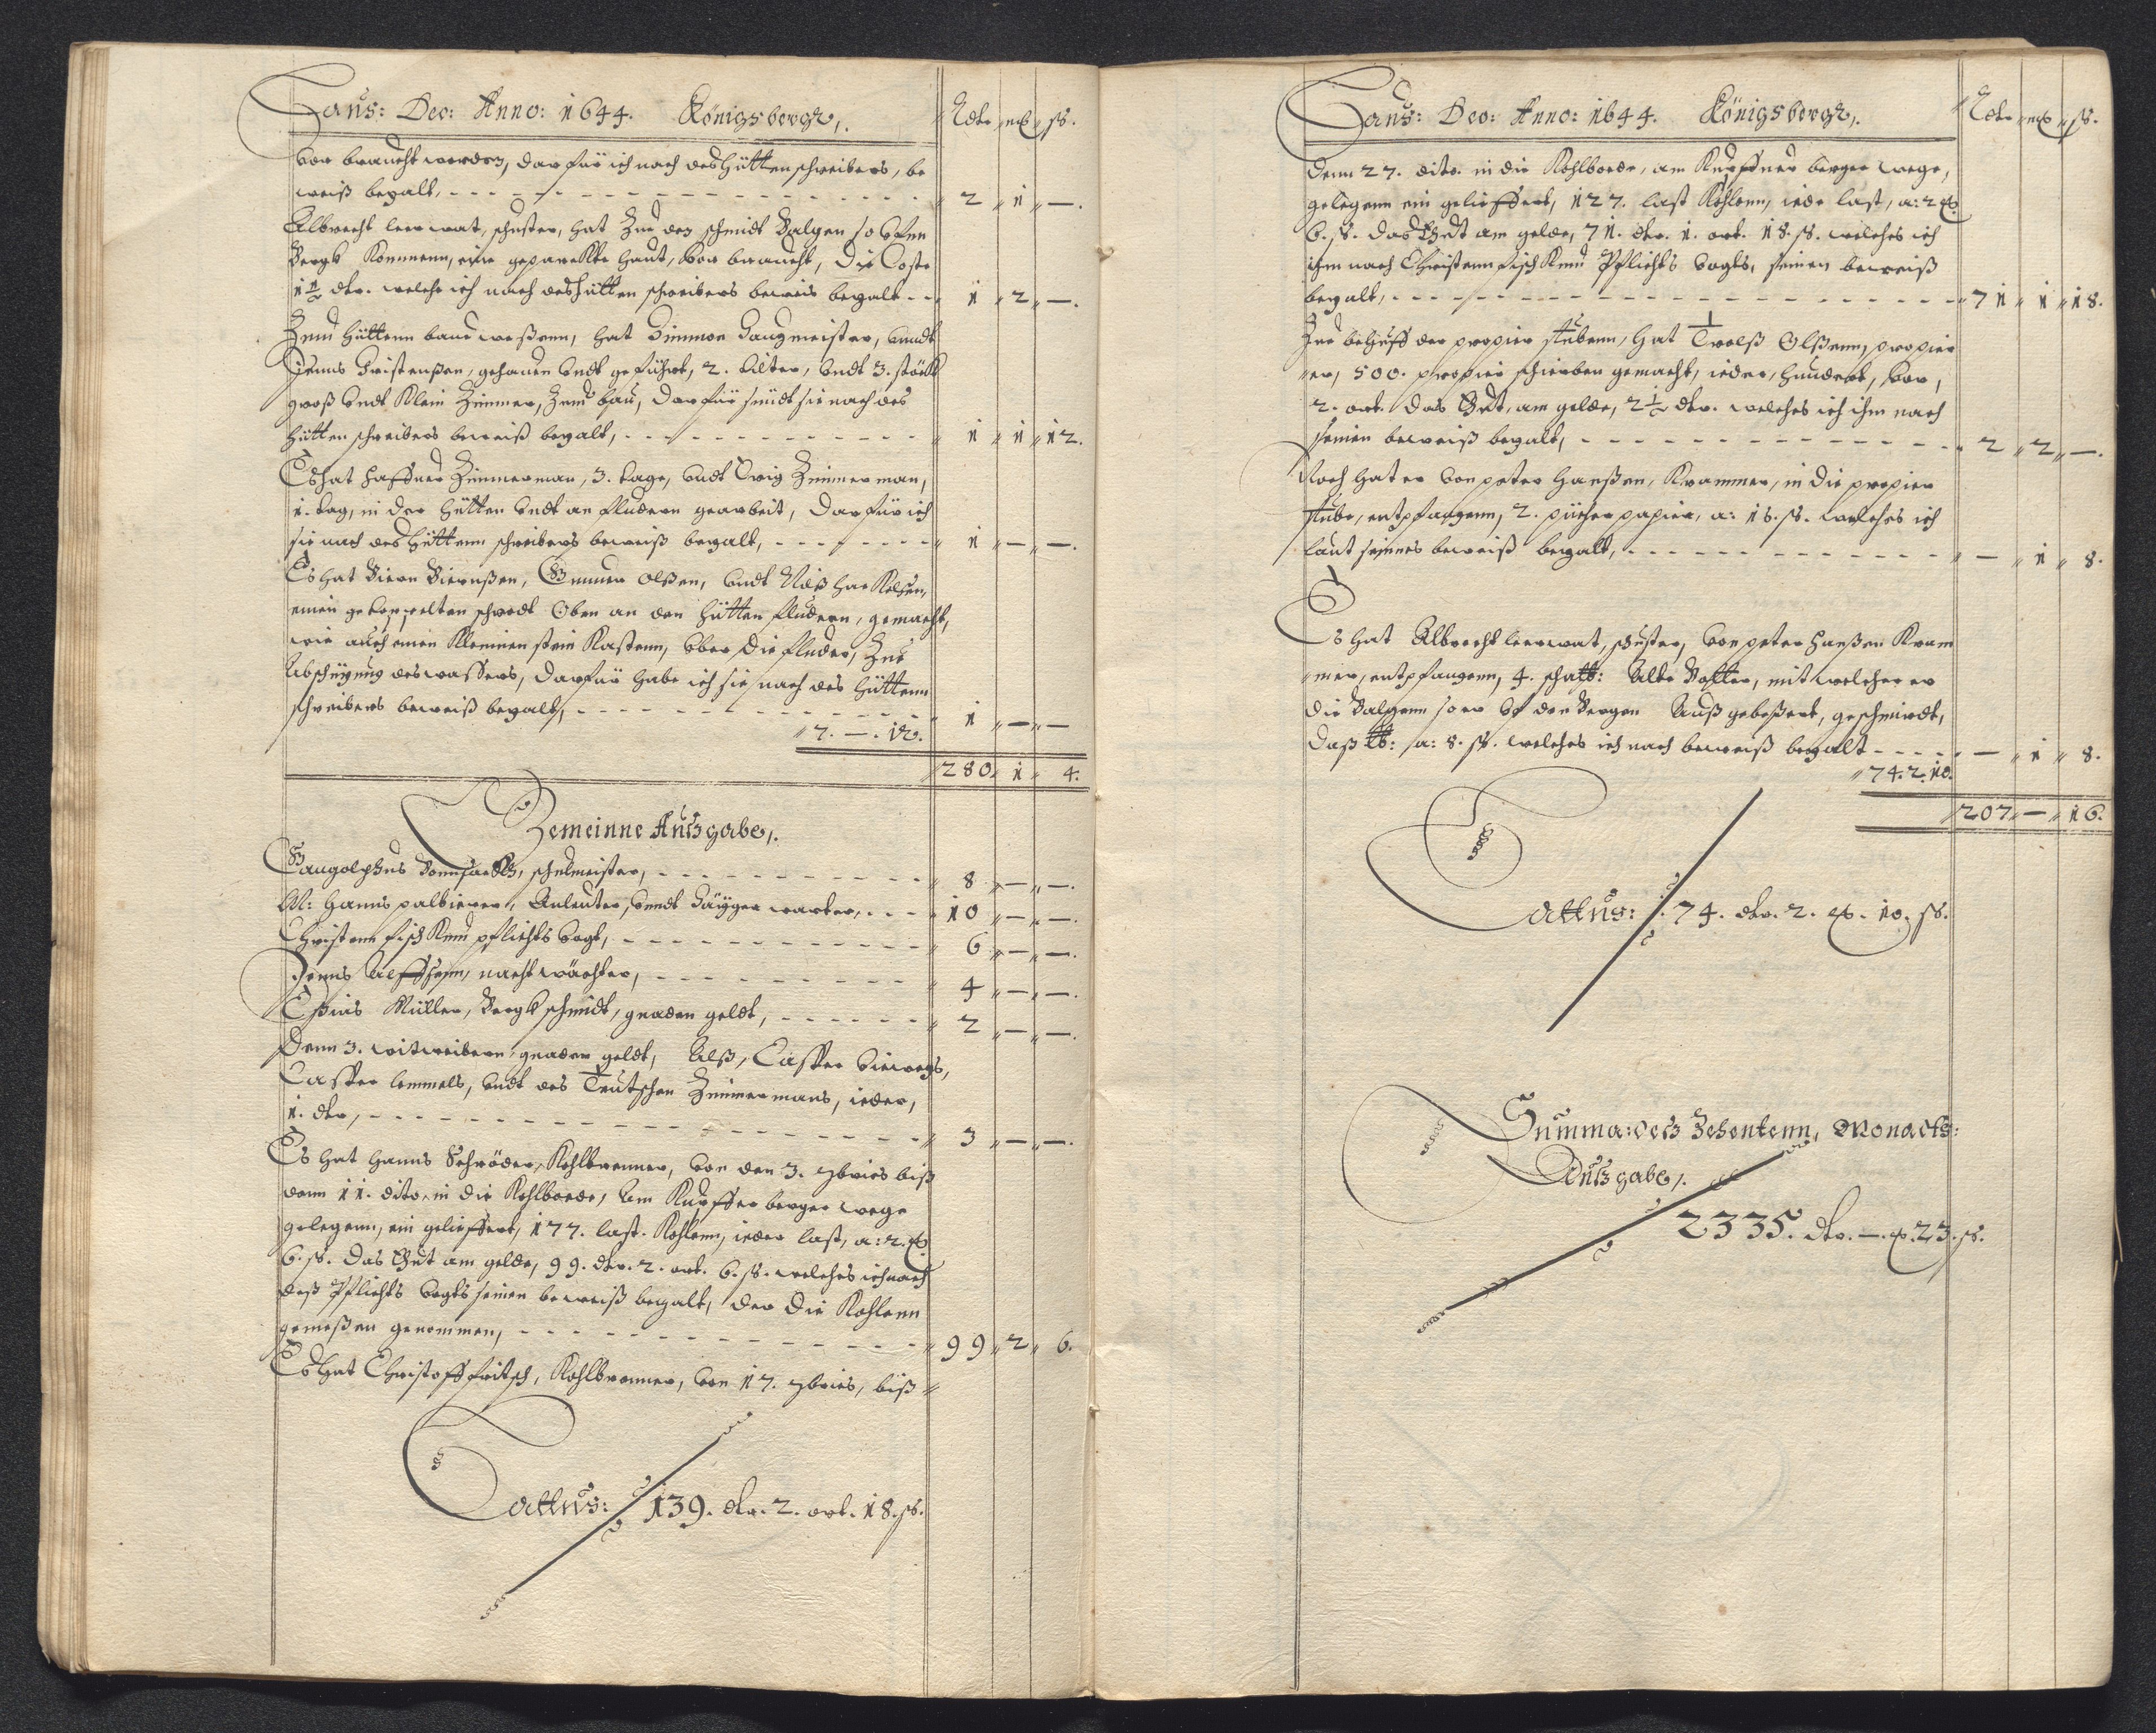 Laus: Deo: Anno: 1644. Königsbergk,. Rdtr ort ß.
vor braucht worden, darfür ich nach des Hüttenschreibers, be
weiß bezalt, - - - 2 " 1 " —.
Albrecht leerwat, schuster, hat Zue den schmidt Balgen so
Bergk kommenn, eine haut, vor braucht, die Coste
1½ dtr. welche ich nach des Hütten schreibers beweis bezalt - - 1 " 2 " —.
Zum Hüttenn baue weßenn, hat Simmon vnndt
Jenns Cristenßen, gehauen vndt geführt, 2. Alter, vndt 3. stöck
groß vndt klein Zimmer, Zum bau, darfür sindt sie nach des
Hütten schreibers beweiß bezalt, - - - 1 " 1 " 12.
Es hat Haffner Zimmerman, 3. tage, vndt Zimmerman,
1. tag, in der Hütten vndt an fludern gearbeit, darfür ich
sie nach des Hüttenn schreibers beweiß bezalt, - - - 1 " — " —.
Es hat Biern Biernßen, Gunner Olßen, vndt
einen schwedt Oben an den Hütten fludern, gemacht,
wie auch einen kleinen stein kastenn, vber die fluder, Zue
des wassers, darfür habe ich sie nach des Hüttenn
schreibers beweiß bezalt, - - - 1 " — " —
" 7. —. 12.
280 " 1 " 4.
Gemeinne Außgabe,.
Gangolphus schulmeister, - - - 8 " — " —.
M: Hanns palbierer, vnndt warter, - - - 10 " — " —.
Christenn fisch pflichts Vogt, - - - 6 " — " —.
Jenns nacht wächter, - - - 4 " — " —.
Müller, Bergk schmidt, gnaden geldt, - - - 2 " — " —.
Denn 3. witweibern, gnaden geldt, Alß, Casper
Casper lemmels, vndt des Teutschen Zimmermans, ieder,
1. dtr, - - - 3 " — " —.
Es hat Hanns Schröder, Kohlbrenner, von den 3. 9bries biß
denn 11. dito, in die Kohlboede, am Kupfferberger wege
gelegenn, ein geliefert, 177. last. Kohlenn, ieder last, a: 2. ort
6. ß. das thut am gelde, 99. dtr. 2. ort. 6. ß. welches ich nach
deß Pflichts Vogts seinen beweiß bezalt, der die Kohlenn
gemeßen genommen, - - - 99 " 2 " 6.
Es hat Christoff fritsch, Kohlbrenner, von 17. 9bries, biß
Lattus: 139. dtr. 2. ort. 18. ß.
Laus: Deo: Anno: 1644. Königsbergk,. Rdtr ort ß.
denn 27. dito. in die Kohlboede, am Kupffner berger wege,
gelegenn ein geliefert, 127. last Kohlenn, iede last, a: 2 ort
6. ß. das thut am gelde, 71. dtr. 1. ort. 18. ß. welches ich
ihm nach Christenn fisch Pflichts Vogts, seinen beweiß
bezalt, - - - 71 " 1 " 18.
Zue behuff der propier stubenn, hat Troelß Olßenn, propier
er, 500. propier schierben gemacht, ieder, hundert, vor,
2. ort. das thut, am gelde, 2½ dtr. welches ich ihm nach
seinen beweiß bezalt, - - - 2 " 2 " —.
Noch hat er von peter Hanßen, Krammer, in die propier
stube, entpfangenn, 2. bücher papier, a: 16. ß. welches ich
laut seines beweiß bezalt, - - - — " 1 " 8.
Es hat Albrecht leerwat, schuster, von peter Hanßen Kram
mer, entpfangenn, 4. Alte mit welcher er
die Balgenn so er vf den Bergen Auß gebeßert, geschmirdt,
daß a: 8. ß. welches ich nach beweiß bezalt - - - — " 1 " 8.
" 74. 2. 10.
207 " — " 16.
Lattus: 74. dtr. 2. ort. 10. ß.
Summa: deß Zehentenn, Monacts:
Außgabe,.
2335. dtr. —. ort. 23. ß.